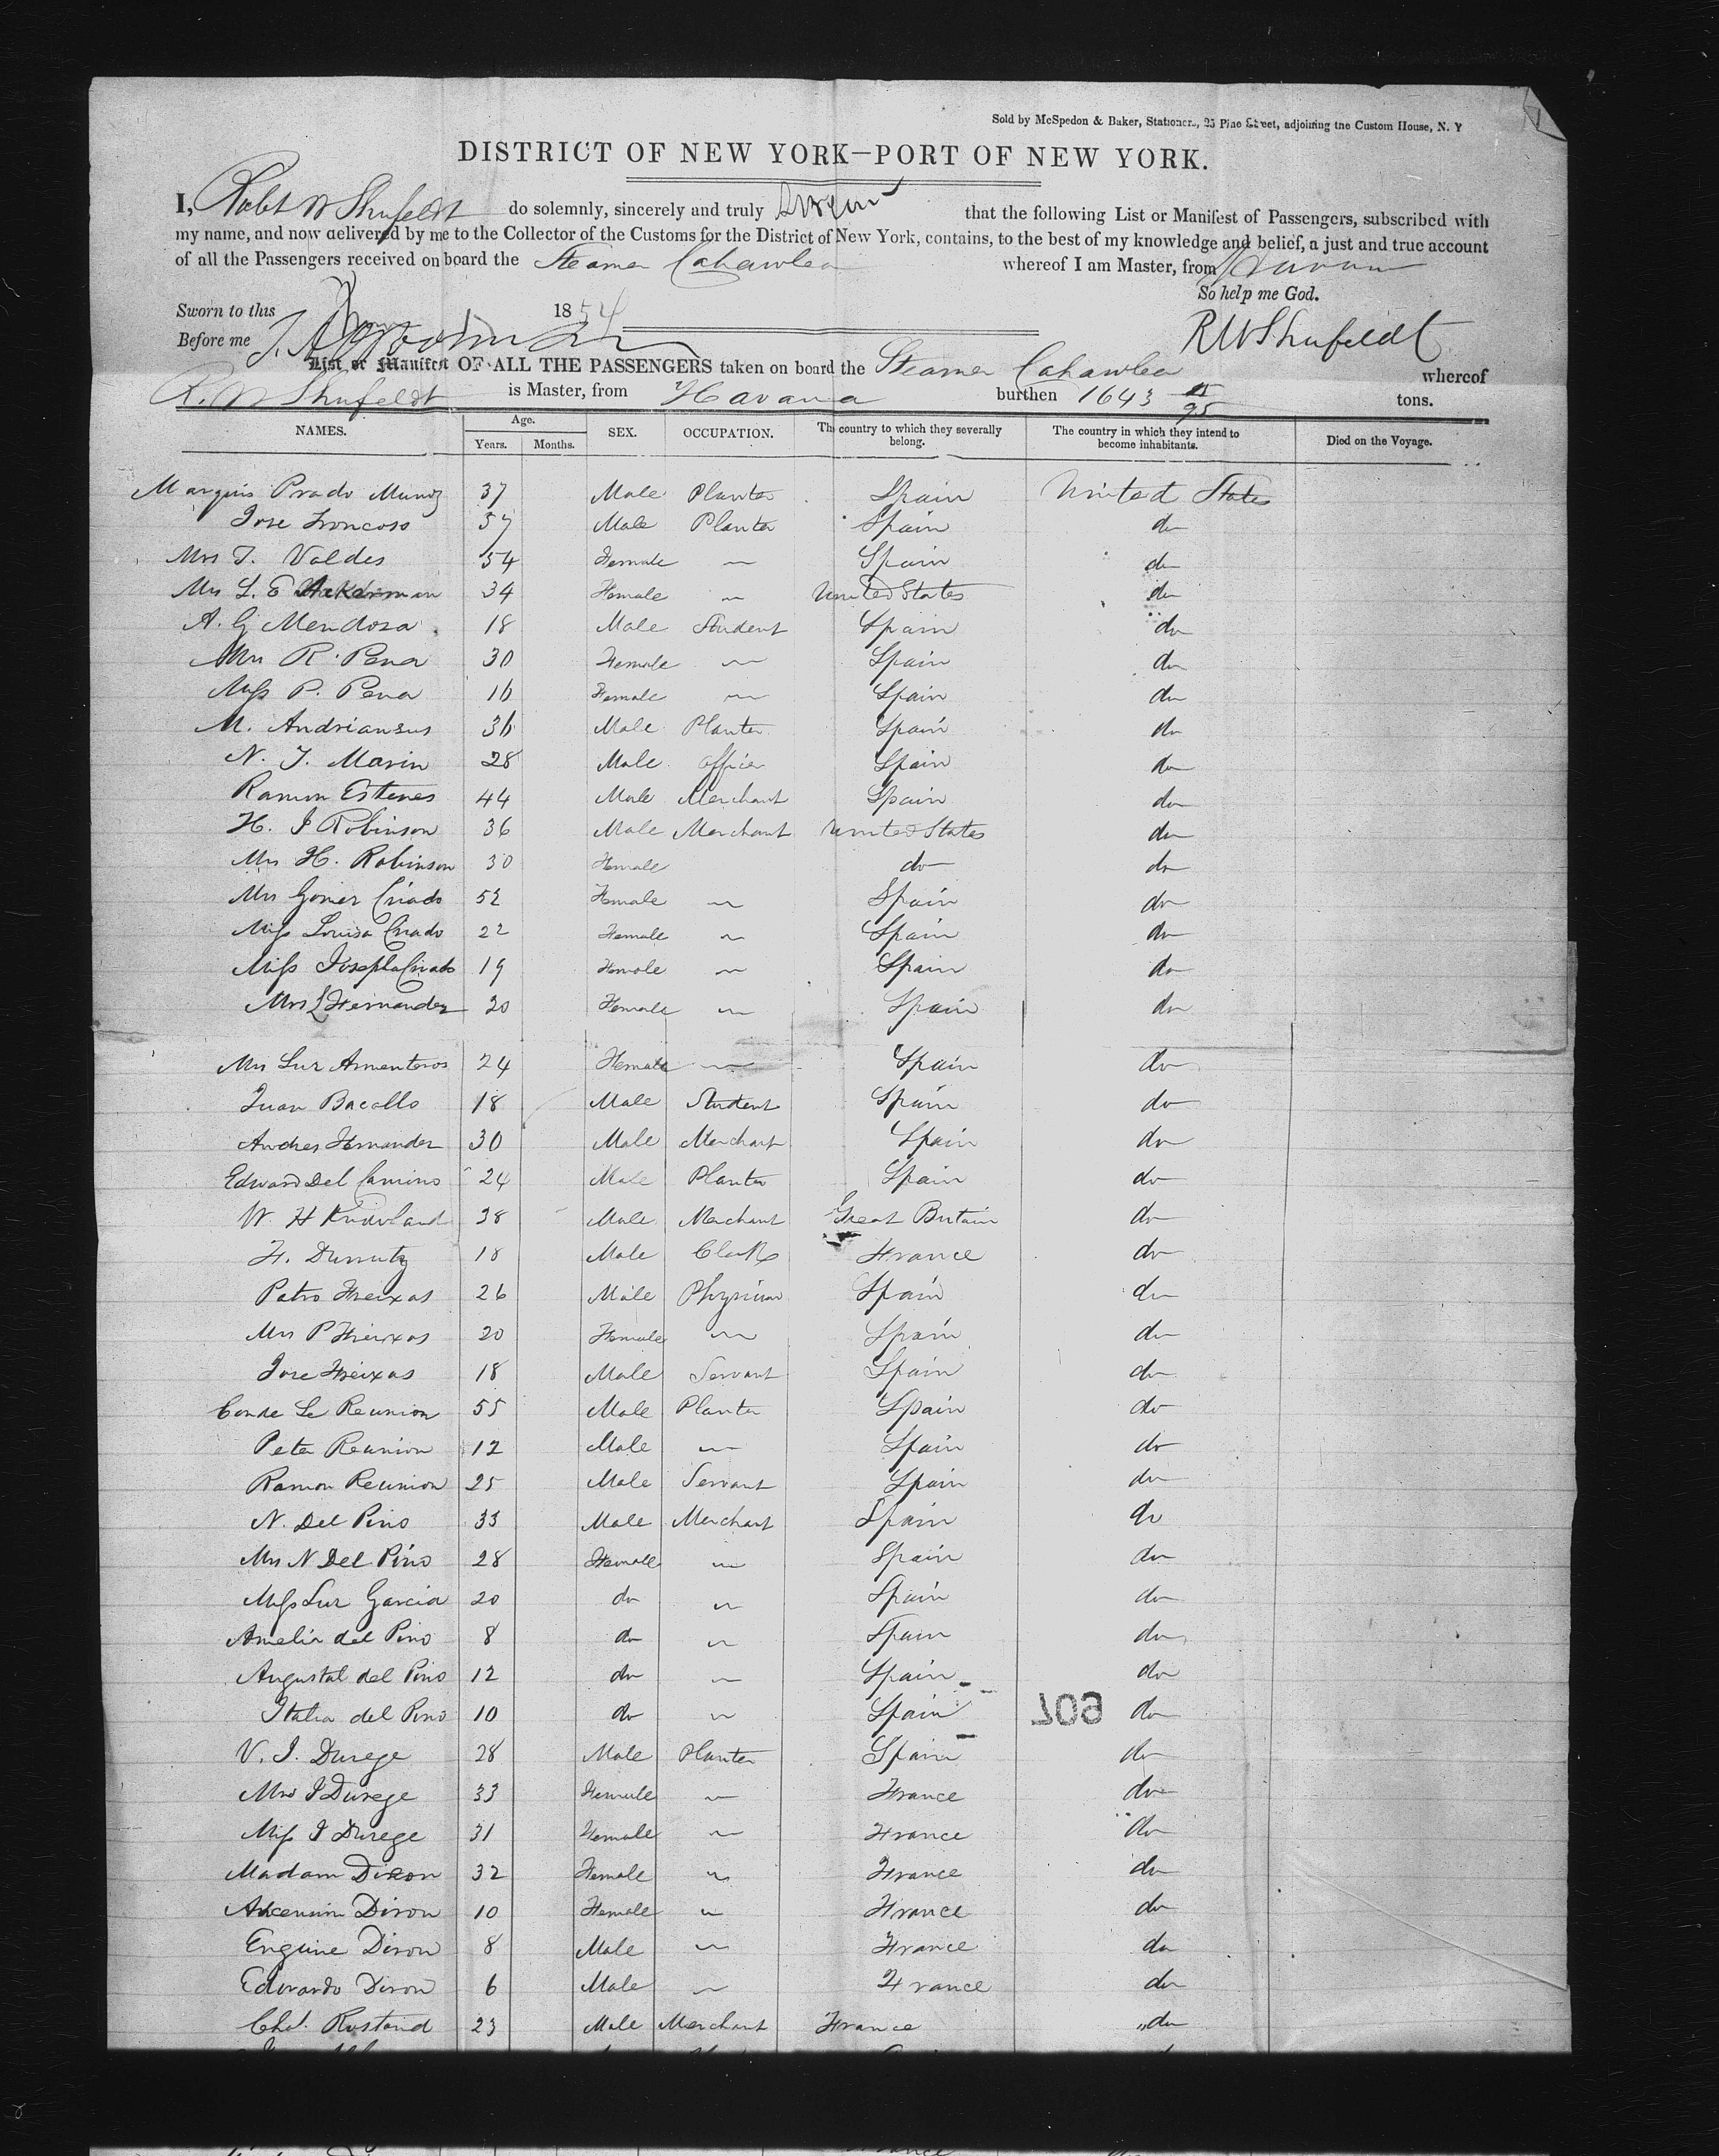 Sold by McSpedon & Baker, Stationers, 25 Pine Street, adjoining the Custom House, N. Y
DISTRICT OF NEW YORK—PORT OF NEW YORK.
I, Robt W Shufeldt do solemnly, sincerely and truly swear that the following List or Manifest of Passengers, subscribed with
my name, and now delivered by me to the Collector of the Customs for the District of New York, contains, to the best of my knowledge and belief, a just and true account
of all the Passengers received on board the Steamer Cahawba whereof I am Master, from Havana
So help me God.
Sworn to this 1854
Before me R W Shufeldt
List or Manifest OF ALL THE PASSENGERS taken on board the Steamer Cahawba whereof
R. W Shufeldt is Master, from Havana burthen 1643 tons.
NAMES. Age. Years. Months. SEX. OCCUPATION. The country to which they severally belong. The country in which they intend to become inhabitants. Died on the Voyage.
Marquis Prado Munoz 37 Male Planter Spain United States
Jose Troncoso 57 Male Planter Spain do
Mrs T. Valdes 54 Female — Spain do
Mrs L. E Ackerman 34 Female — United States do
A. G Mendosa 18 Male Student Spain do
Mrs R. Pena 30 Female — Spain do
Miss P. Pena 16 Female — Spain do
M. Andriansus 36 Male Planter Spain do
N. T. Marin 28 Male officer Spain do
Ramon Estenes 44 Male Merchant Spain do
H. I Robinson 36 Male Merchant United States do
Mrs H. Robinson 30 Female do do
Mrs Gomer Criado 52 Female — Spain do
Miss Louisa Criado 22 Female — Spain do
Miss Josepha Criado 19 Female — Spain do
Mrs L Hernandez 20 Female — Spain do
Mrs Luz Armenteros 24 Female — Spain do
Juan Bacallo 18 Male Student Spain do
Andres Hernander 30 Male Merchant Spain do
Edward Del Camino 24 Male Planter Spain do
W. H 38 Male Merchant Great Britain do
H. 18 Male Clerk France do
Pedro Freixas 26 Male Physician Spain do
Mrs P Freixas 20 Female — Spain do
Jose Freixas 18 Male Servant Spain do
Conde Le Reunion 55 Male Planter Spain do
Peter Reunion 12 Male — Spain do
Ramon Reunion 25 Male Servant Spain do
N. Del Pino 33 Male Merchant Spain do
Mrs N Del Pino 28 Female — Spain do
Miss Luz Garcia 20 do — Spain do
Amelia del Pino 8 do — Spain do
Augustal del Pino 12 do — Spain do
Italia del Pino 10 do — Spain do
709
V. J. Durege 28 Male Planter Spain do
Mrs J Durege 33 Female — France do
Miss J Durege 31 Female — France do
Madam Diron 32 Female — France do
Diron 10 Female — France do
Engine Diron 8 Male — France do
Edwardo Diron 6 Male — France do
Chs. Rostand 23 Male Merchant France do